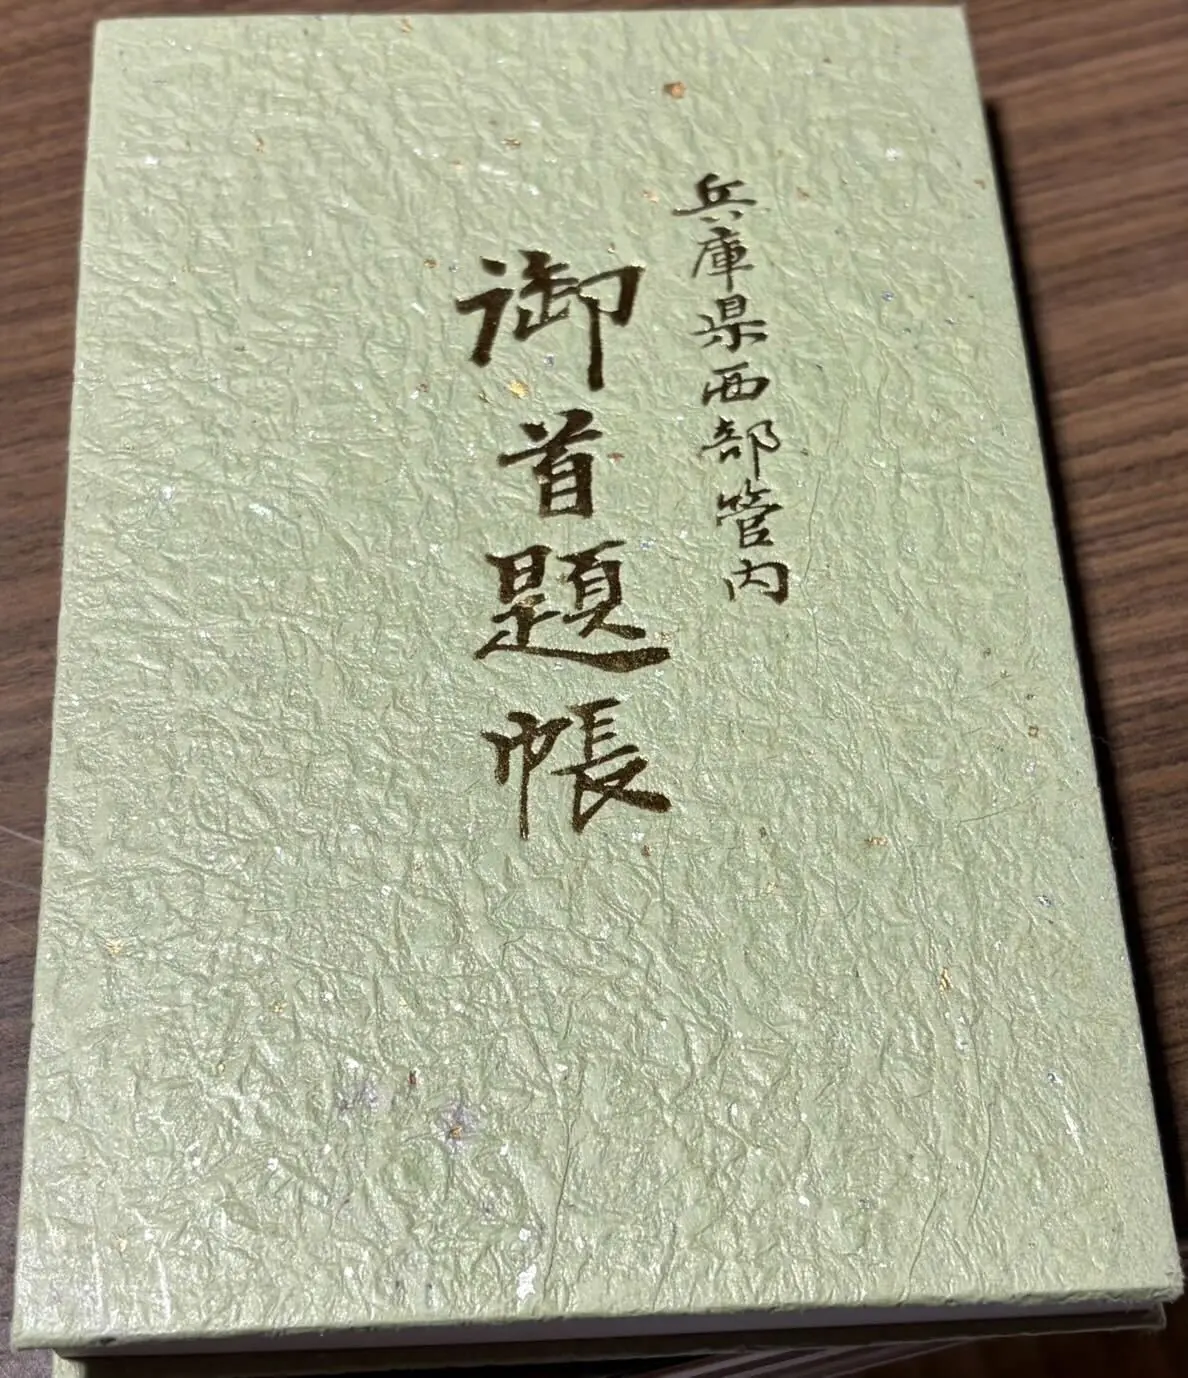 兵庫県西部管内
御首題帳